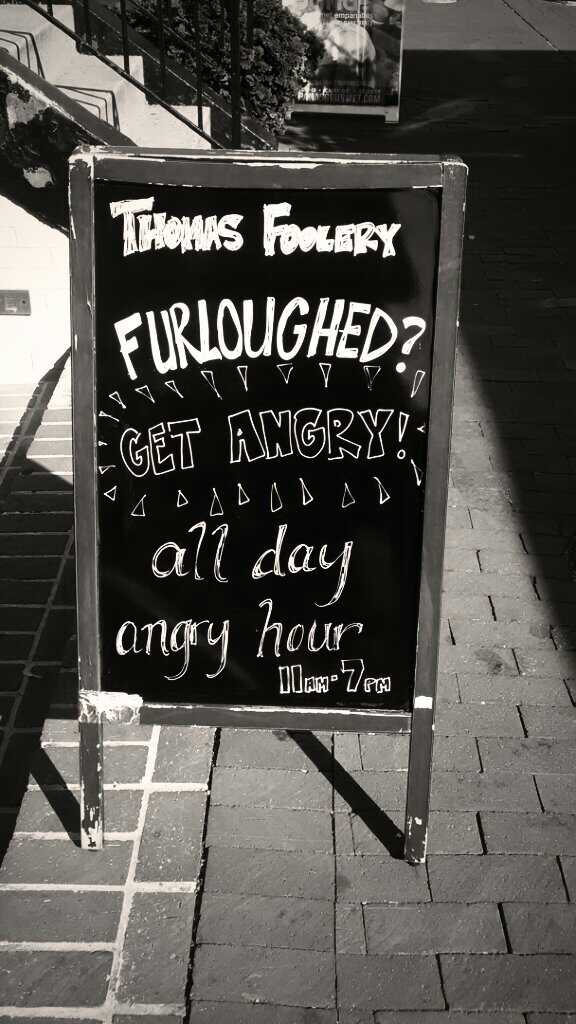 empanadas
THOMAS FOOLERY
FURLOUGHED?
GET ANGRY!
all day
angry hour
11AM-7PM